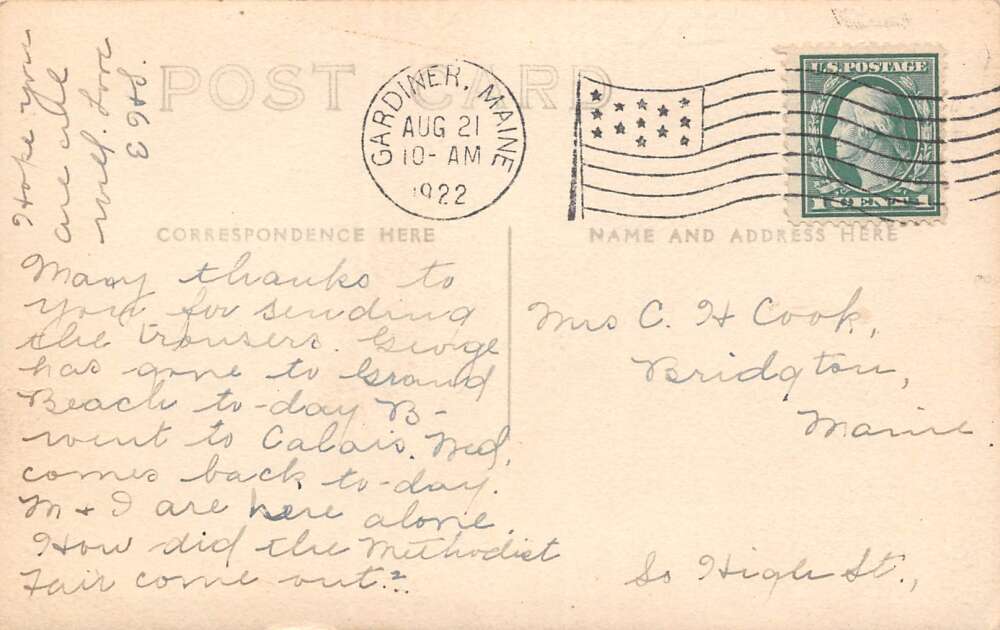 POST CARD
GARDINER, MAINE
AUG 21
10-AM
1922
U.S. POSTAGE
1 CENT 1
CORRESPONDENCE HERE
NAME AND ADDRESS HERE
Many thanks to
you for sending
the trousers. George
has gone to Grand
Beach to-day B-
went to Calais. Wed,
comes back to-day.
M + I are here alone.
How did the Methodist
Fair come out?
Hope you
are all
well. Love
E H S.
Mrs C. H Cook,
Bridgton,
Maine
So High St.,